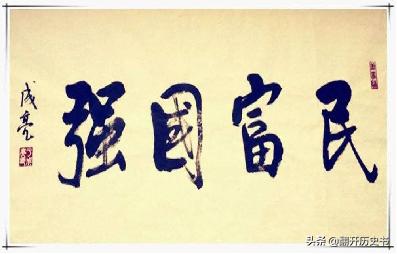 民富國强
成亮
头条 @翻开历史书